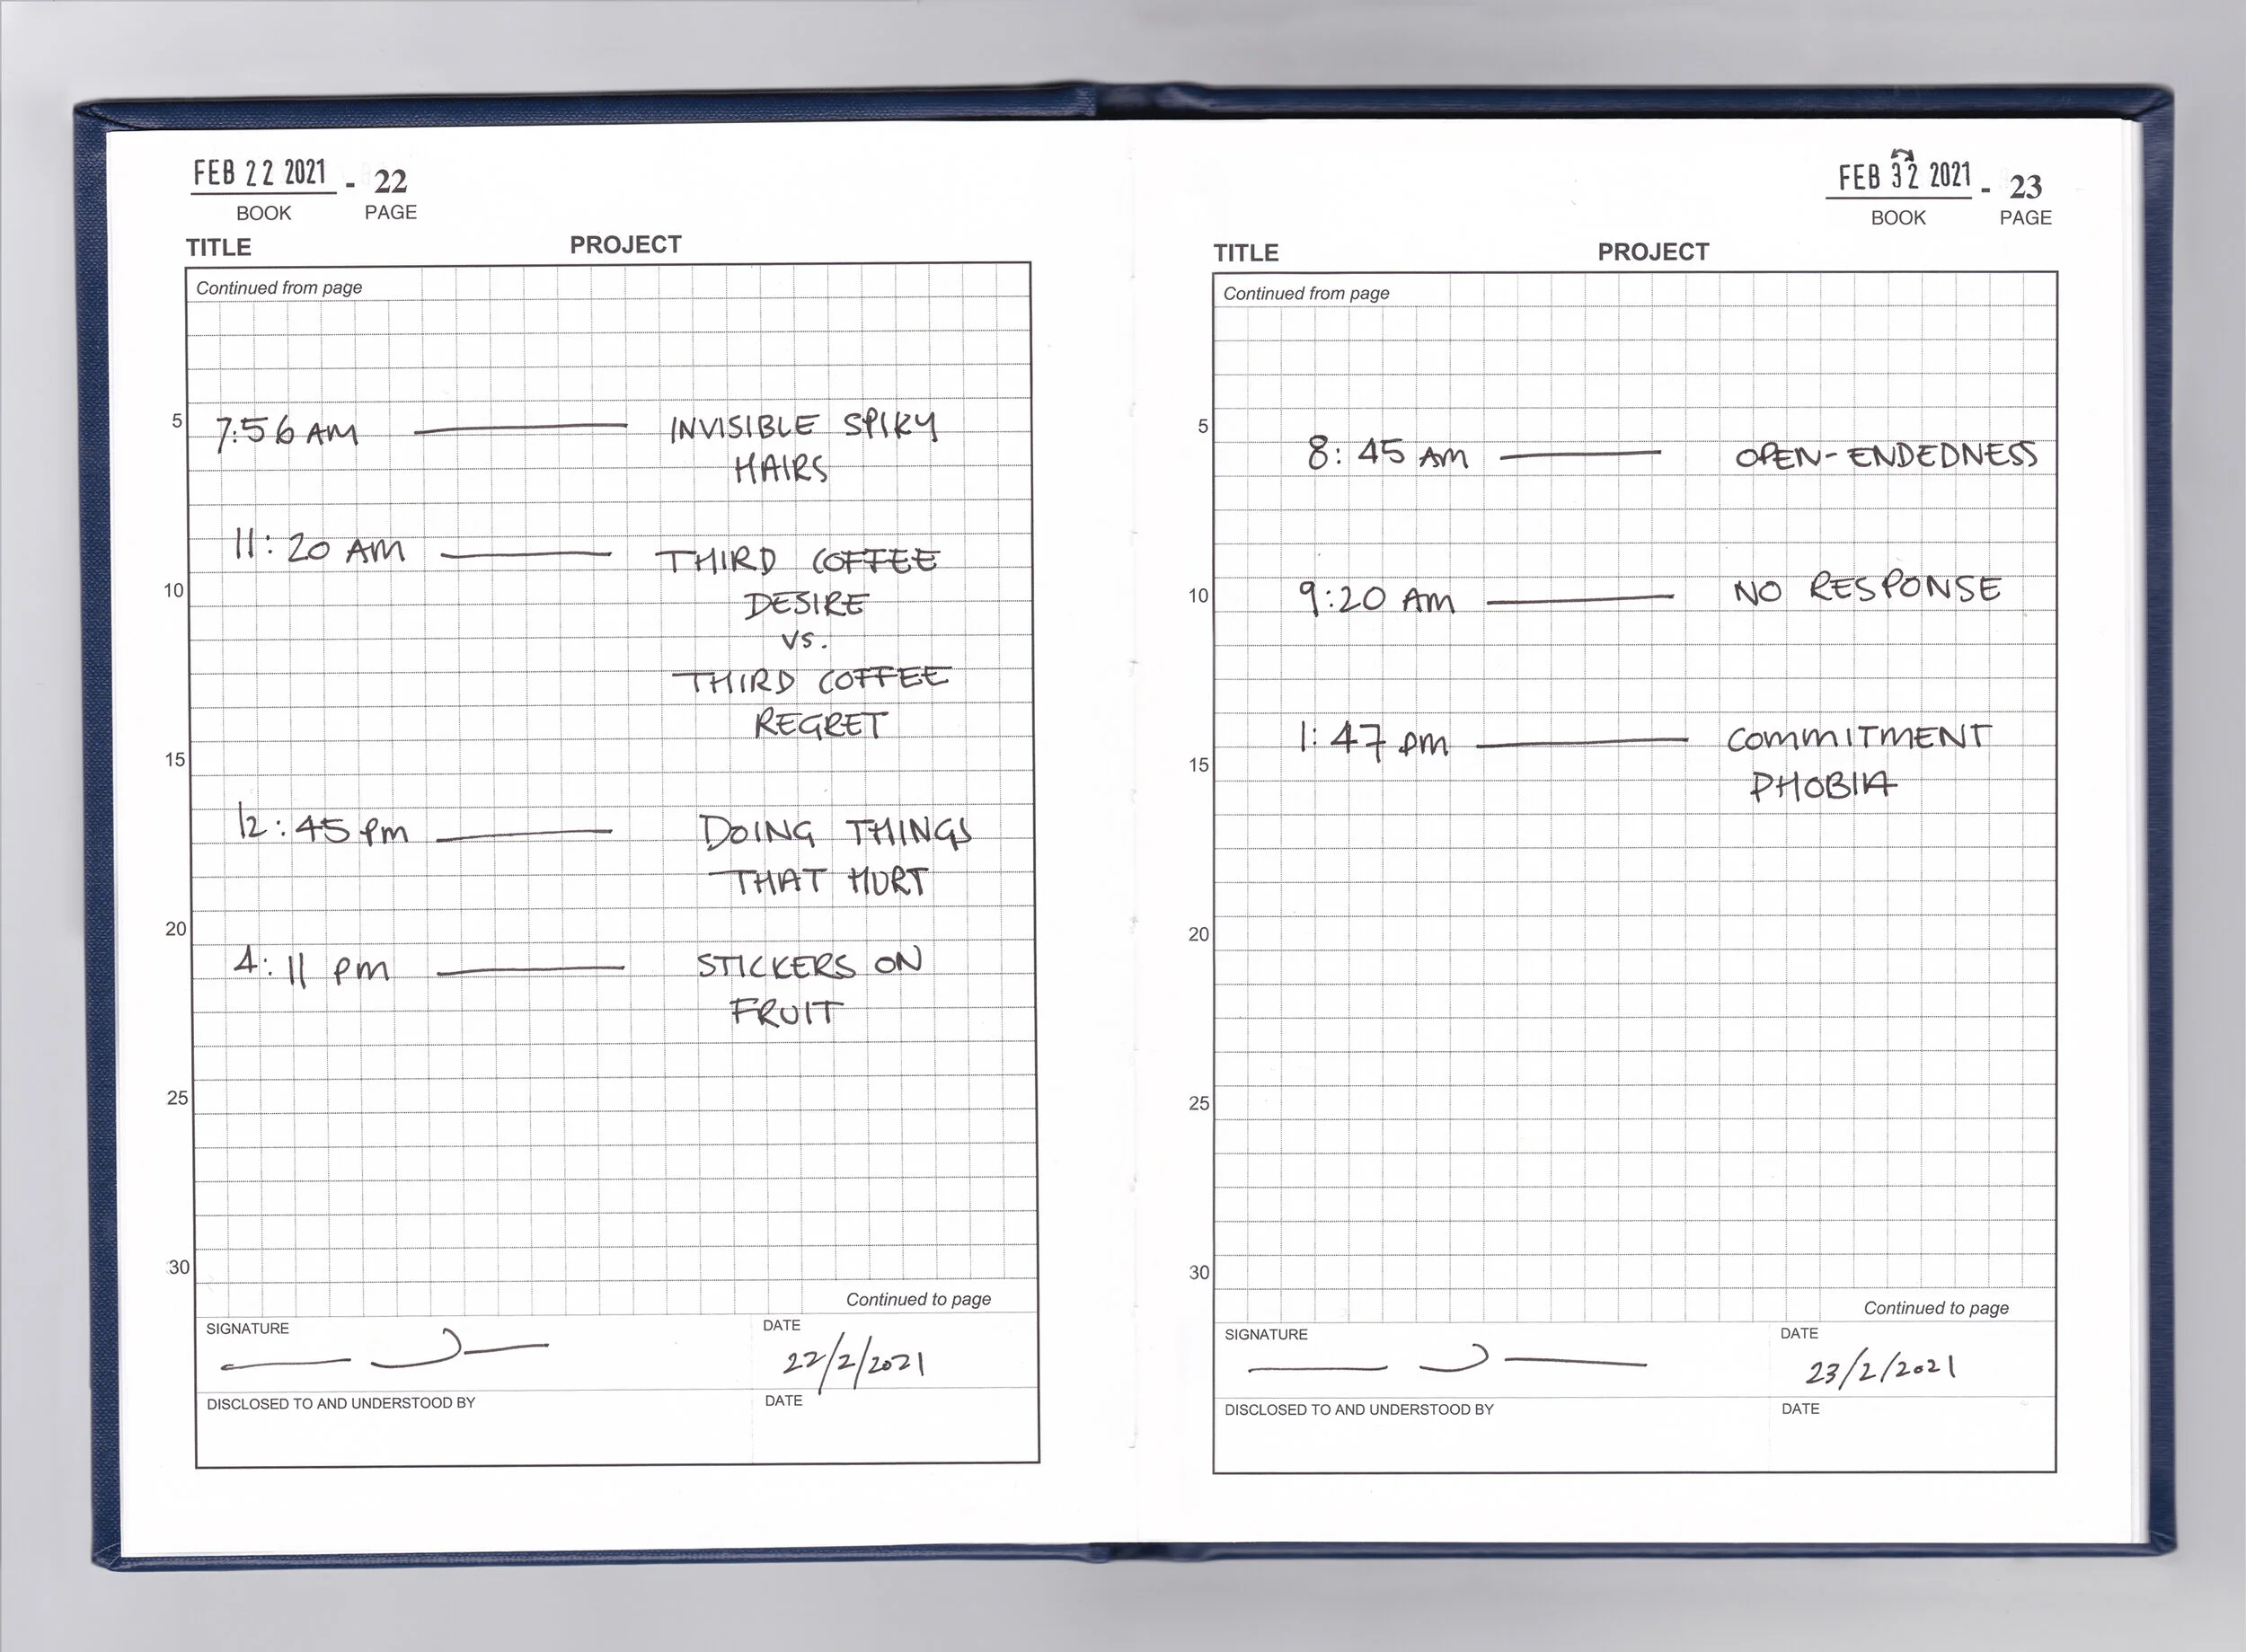 FEB 22 2021 - 22
BOOK PAGE
TITLE PROJECT
Continued from page
5
7:56 AM INVISIBLE SPIKY
HAIRS
11:20 AM THIRD COFFEE
10
DESIRE
VS.
THIRD COFFEE
REGRET
15
12:45 PM DOING THINGS
THAT HURT
20
4:11 PM STICKERS ON
FRUIT
25
30
Continued to page
SIGNATURE DATE
22/2/2021
DISCLOSED TO AND UNDERSTOOD BY DATE
FEB 32 2021 - 23
BOOK PAGE
TITLE PROJECT
Continued from page
5
8:45 AM OPEN-ENDEDNESS
10
9:20 AM NO RESPONSE
1:47 PM COMMITMENT
15
PHOBIA
20
25
30
Continued to page
SIGNATURE DATE
23/2/2021
DISCLOSED TO AND UNDERSTOOD BY DATE